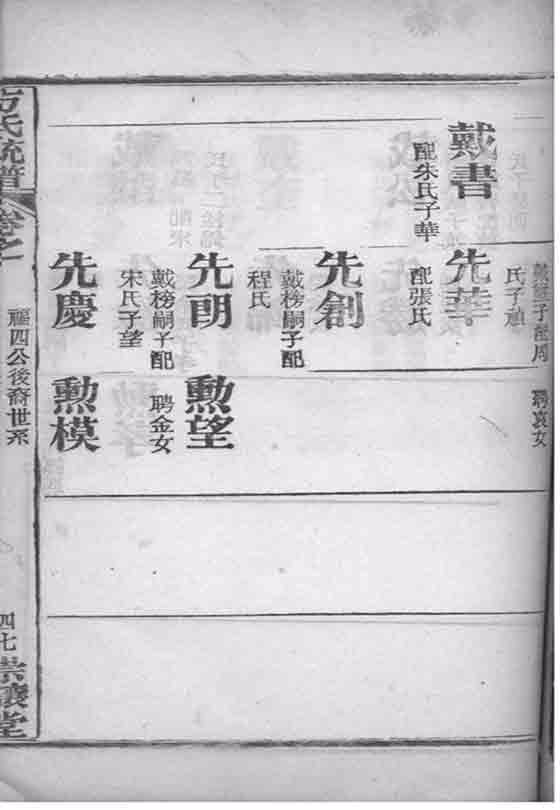 聘袁女
戴書
配朱氏子華
先華
配張氏
先創
戴榜嗣子配
程氏
先朗
戴榜嗣子配
宋氏子望
勲望
聘金女
先慶
勲模
氏統譜
卷之
四公後裔世系
四七
堂